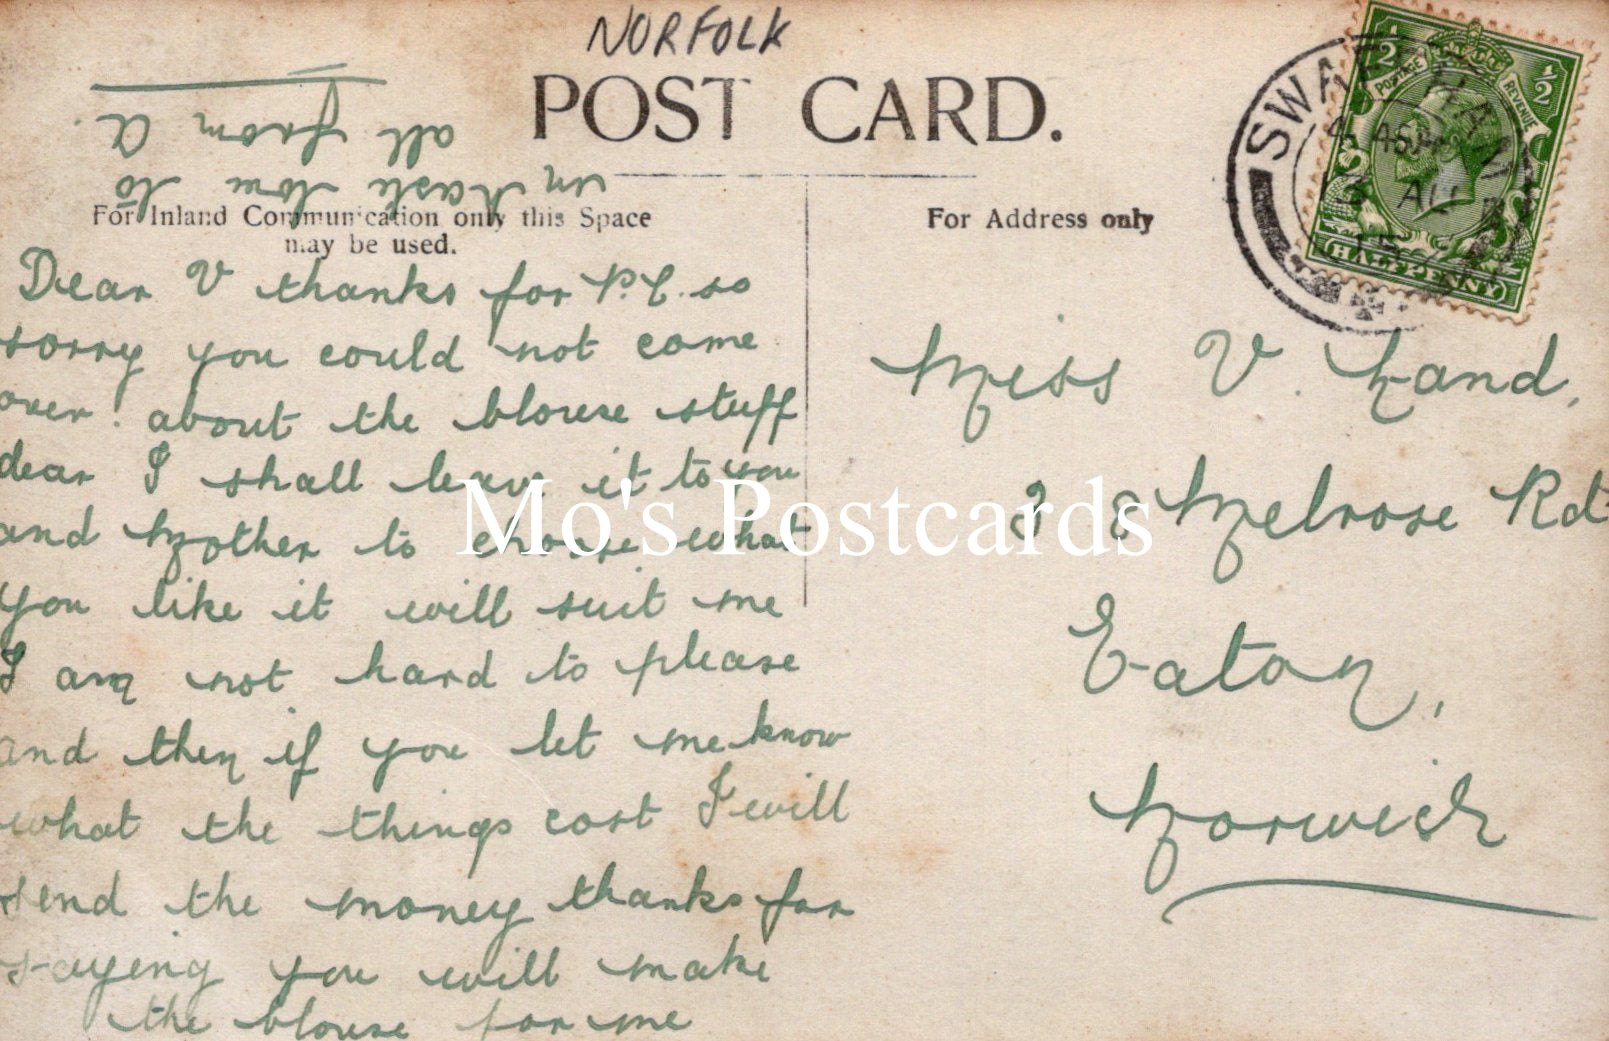 NORFOLK
POST CARD.
For Inland Communication only this Space
may be used.
For Address only
SWAFFHAM
AU
15
½ ½
POSTAGE REVENUE
HALFPENNY
Dear V thanks for P.C. so
sorry you could not come
over! about the blouse stuff
dear I shall leave it to you
and Mother to choose what
you like it will suit me
I am not hard to please
and then if you let me know
what the things cost I will
send the money thanks for
saying you will make
the blouse for me
in haste love to
all from A
Miss V. Land,
Melrose Rd
Eaton,
Norwich
Mo's Postcards